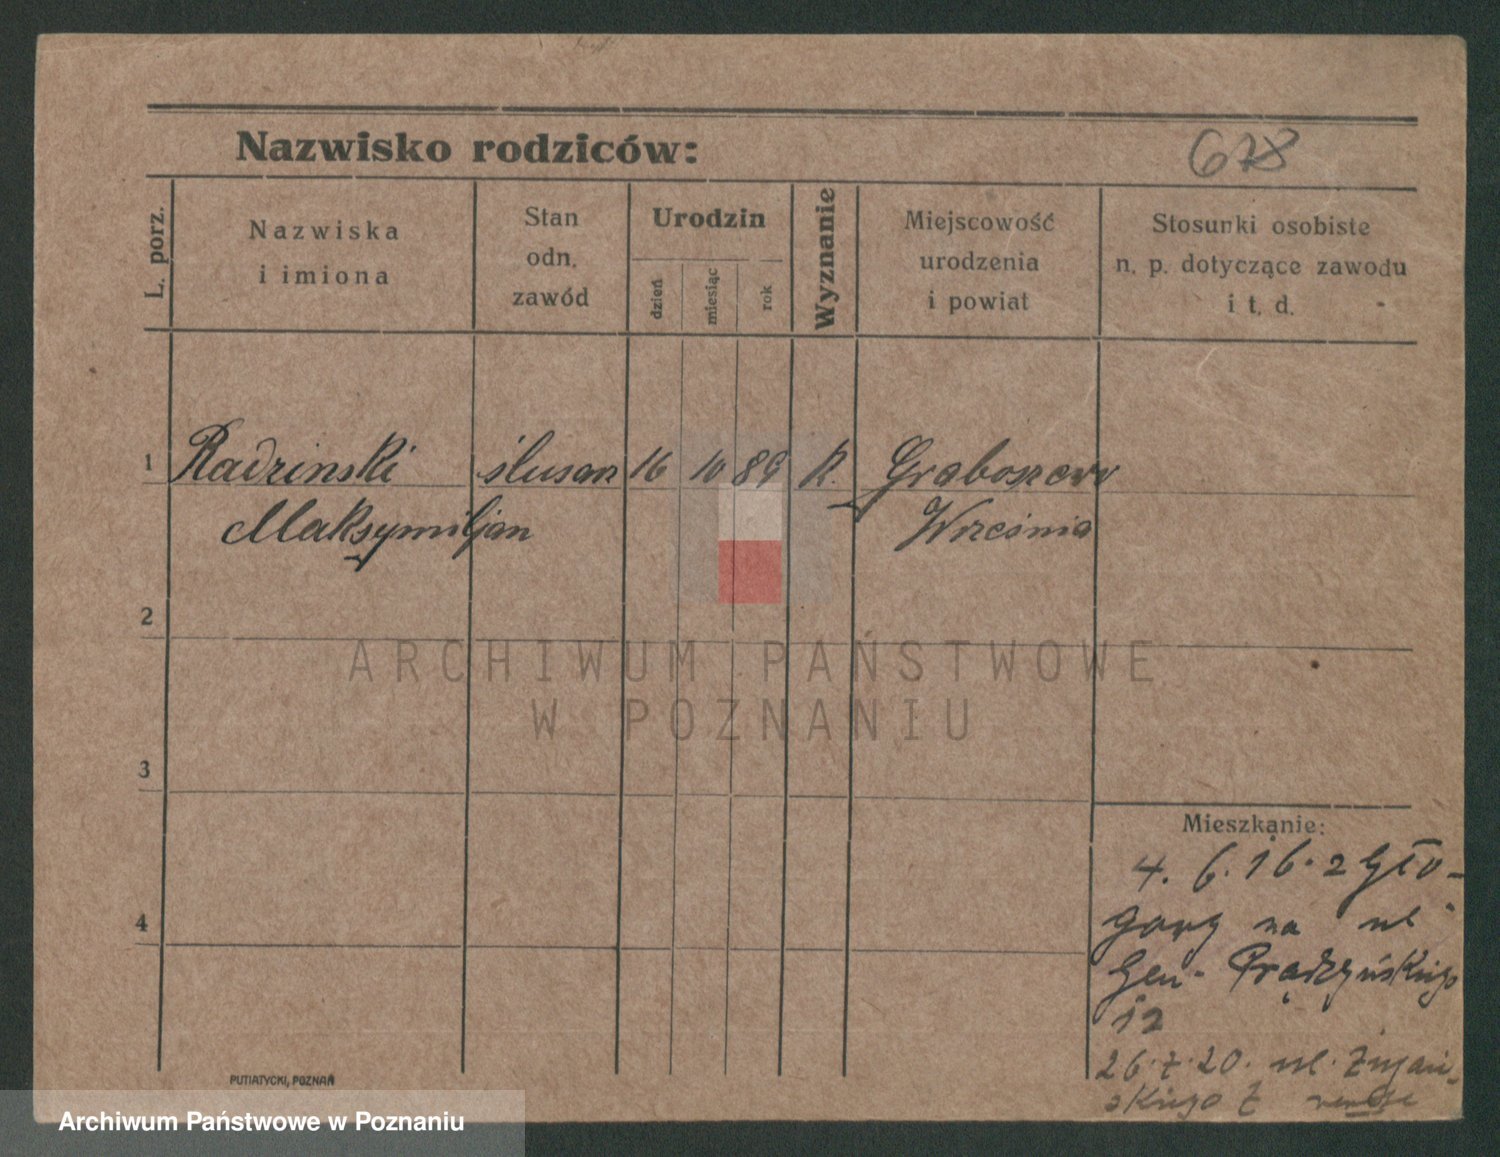 Nazwisko rodziców:
678
L. porz.
Nazwiska
i imiona
Stan
odn.
zawód
Urodzin
dzień
miesiąc
rok
Wyznanie
Miejscowość
urodzenia
i powiat
Stosunki osobiste
n. p. dotyczące zawodu
i t. d.
1 Radzinski ślusarz 16 10 89 R. Graboszewo
Maksymiljan Września
2
ARCHIWUM PAŃSTWOWE
W POZNANIU
3
Mieszkanie:
4. 6. 16. z Gło-
4
gowy na ul
Gen. Prądzyńskiego
12
26. 7. 20. ul.
skiego 7
PUTIATYCKI, POZNAŃ
Archiwum Państwowe w Poznaniu